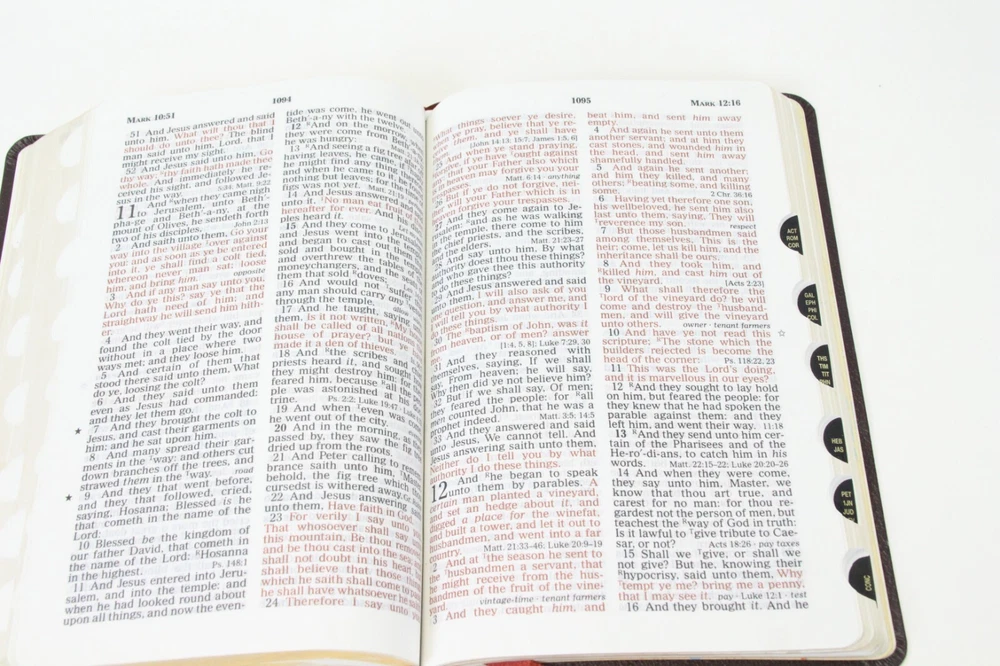 1094
MARK 10:51
51 And Jesus answered and said
unto him, What wilt thou that I
should do unto thee? The blind
man said unto him, Lord, that I
might receive my sight.
52 And Jesus said unto him, Go
thy way; thy faith hath made thee
whole. And immediately he re-
ceived his sight, and followed Je-
sus in the way. 5:34; Matt. 9:22
11 And when they came nigh
to Jerusalem, unto Beth'-
pha-ge and Beth'-a-ny, at the
mount of Olives, he sendeth forth
two of his disciples, John 2:13
2 And saith unto them, Go your
way into the village over against
you: and as soon as ye be entered
into it, ye shall find a colt tied,
whereon never man sat; loose
him, and bring him. opposite
3 And if any man say unto you,
Why do ye this? say ye that the
Lord hath need of him; and
straightway he will send him hith-
4 And they went their way, and
found the colt tied by the door
without in a place where two
ways met; and they loose him.
5 And certain of them that
stood there said unto them, What
do ye, loosing the colt?
6 And they said unto them
even as Jesus had commanded:
and they let them go.
7 And they brought the colt to
Jesus, and cast their garments on
him; and he sat upon him.
8 And many spread their gar-
ments in the way: and others cut
down branches off the trees, and
strawed them in the way. road
9 And they that went before,
and they that followed, cried,
saying, Hosanna; Blessed is he
that cometh in the name of the
Lord:
10 Blessed be the kingdom of
our father David, that cometh in
the name of the Lord: Hosanna
in the highest. Ps. 148:1
11 And Jesus entered into Jeru-
salem, and into the temple: and
when he had looked round about
upon all things, and now the even-
tide was come, he went out
Beth'-a-ny with the twelve.
12 And on the morrow,
they were come from Beth
he was hungry:
13 And seeing a fig tree
having leaves, he came, if
he might find any thing
and when he came to it,
nothing but leaves; for the
figs was not yet. Matt.
14 And Jesus answered a
unto it, No man eat fruit
hereafter for ever. And his
ples heard it.
15 And they come to Jeru
and Jesus went into the
and began to cast out th
sold and bought in the
and overthrew the tables o
moneychangers, and the
them that sold doves;
16 And would not suffer
any man should carry any
through the temple.
17 And he taught, saying
them, Is it not written, My
shall be called of all na
house of prayer? but ye
made it a den of thieves.
18 And the scribes and
priests heard it, and sough
they might destroy him: for
feared him, because all the
ple was astonished at his
trine. Ps. 2:2; Luke 19:47
19 And when even was
he went out of the city.
20 And in the morning, as
passed by, they saw the
dried up from the roots.
21 And Peter calling to reme
brance saith unto him,
behold, the fig tree which
cursedst is withered away.
22 And Jesus answering
unto them, Have faith in God.
23 For verily I say unto
That whosoever shall say
this mountain, Be thou remov
and be thou cast into the sea
shall not doubt in his heart
shall believe that those
which he saith shall come to
he shall have whatsoever he
24 Therefore I say unto
1095
MARK 12:16
things soever ye desire,
ye pray, believe that ye re-
them, and ye shall have
[John 14:13; 15:7; James 1:5, 6]
And when ye stand praying,
if ye have ought against
that your Father also which
in heaven may forgive you your
Matt. 6:14 · anything
if ye do not forgive, nei-
will your Father which is in
forgive your trespasses.
And they come again to Je-
and as he was walking
in the temple, there come to him
chief priests, and the scribes,
elders, Matt. 21:23-27
And say unto him, By what
authority doest thou these things?
who gave thee this authority
do these things?
And Jesus answered and said
unto them, I will also ask of you
question, and answer me, and
I will tell you by what authority I
these things.
baptism of John, was it
from heaven, or of men? answer
[1:4, 5, 8]; Luke 7:29, 30
And they reasoned with
themselves, saying, If we shall
say, From heaven; he will say,
Why then did ye not believe him?
But if we shall say, Of men;
they feared the people: for all
men counted John, that he was a
prophet indeed. Matt. 3:5; 14:5
33 And they answered and said
unto Jesus, We cannot tell. And
Jesus answering saith unto them,
Neither do I tell you by what
authority I do these things.
12 And he began to speak
unto them by parables. A
certain man planted a vineyard,
and set an hedge about it, and
digged a place for the winefat,
and built a tower, and let it out to
husbandmen, and went into a far
country. Matt. 21:33-46; Luke 20:9-19
2 And at the season he sent to
the husbandmen a servant, that
might receive from the hus-
bandmen of the fruit of the vine-
yard. vintage-time · tenant farmers
3 And they caught him, and
beat him, and sent him away
empty.
4 And again he sent unto them
another servant; and at him they
cast stones, and wounded him in
the head, and sent him away
shamefully handled.
5 And again he sent another;
and him they killed, and many
others; beating some, and killing
some. 2 Chr. 36:16
6 Having yet therefore one son,
his wellbeloved, he sent him also
last unto them, saying, They will
reverence my son. respect
7 But those husbandmen said
among themselves, This is the
heir; come, let us kill him, and the
inheritance shall be ours.
8 And they took him, and
killed him, and cast him out of
the vineyard. [Acts 2:23]
9 What shall therefore the
lord of the vineyard do? he will
come and destroy the husband-
men, and will give the vineyard
unto others. owner · tenant farmers
10 And have ye not read this
scripture; The stone which the
builders rejected is become the
head of the corner: Ps. 118:22, 23
11 This was the Lord's doing,
and it is marvellous in our eyes?
12 And they sought to lay hold
on him, but feared the people: for
they knew that he had spoken the
parable against them: and they
left him, and went their way. 11:18
13 And they send unto him cer-
tain of the Pharisees and of the
He-ro'-di-ans, to catch him in his
words. Matt. 22:15-22; Luke 20:20-26
14 And when they were come,
they say unto him, Master, we
know that thou art true, and
carest for no man: for thou re-
gardest not the person of men, but
teachest the way of God in truth:
Is it lawful to give tribute to Cae-
sar, or not? Acts 18:26 · pay taxes
15 Shall we give, or shall we
not give? But he, knowing their
hypocrisy, said unto them, Why
tempt ye me? bring me a penny,
that I may see it. pay · Luke 12:1 · test
16 And they brought it. And he
ACT
ROM
COR
GAL
EPH
PHI
COL
THS
TIM
TIT
PHN
HEB
JAS
PET
1JN
JUD
CONC